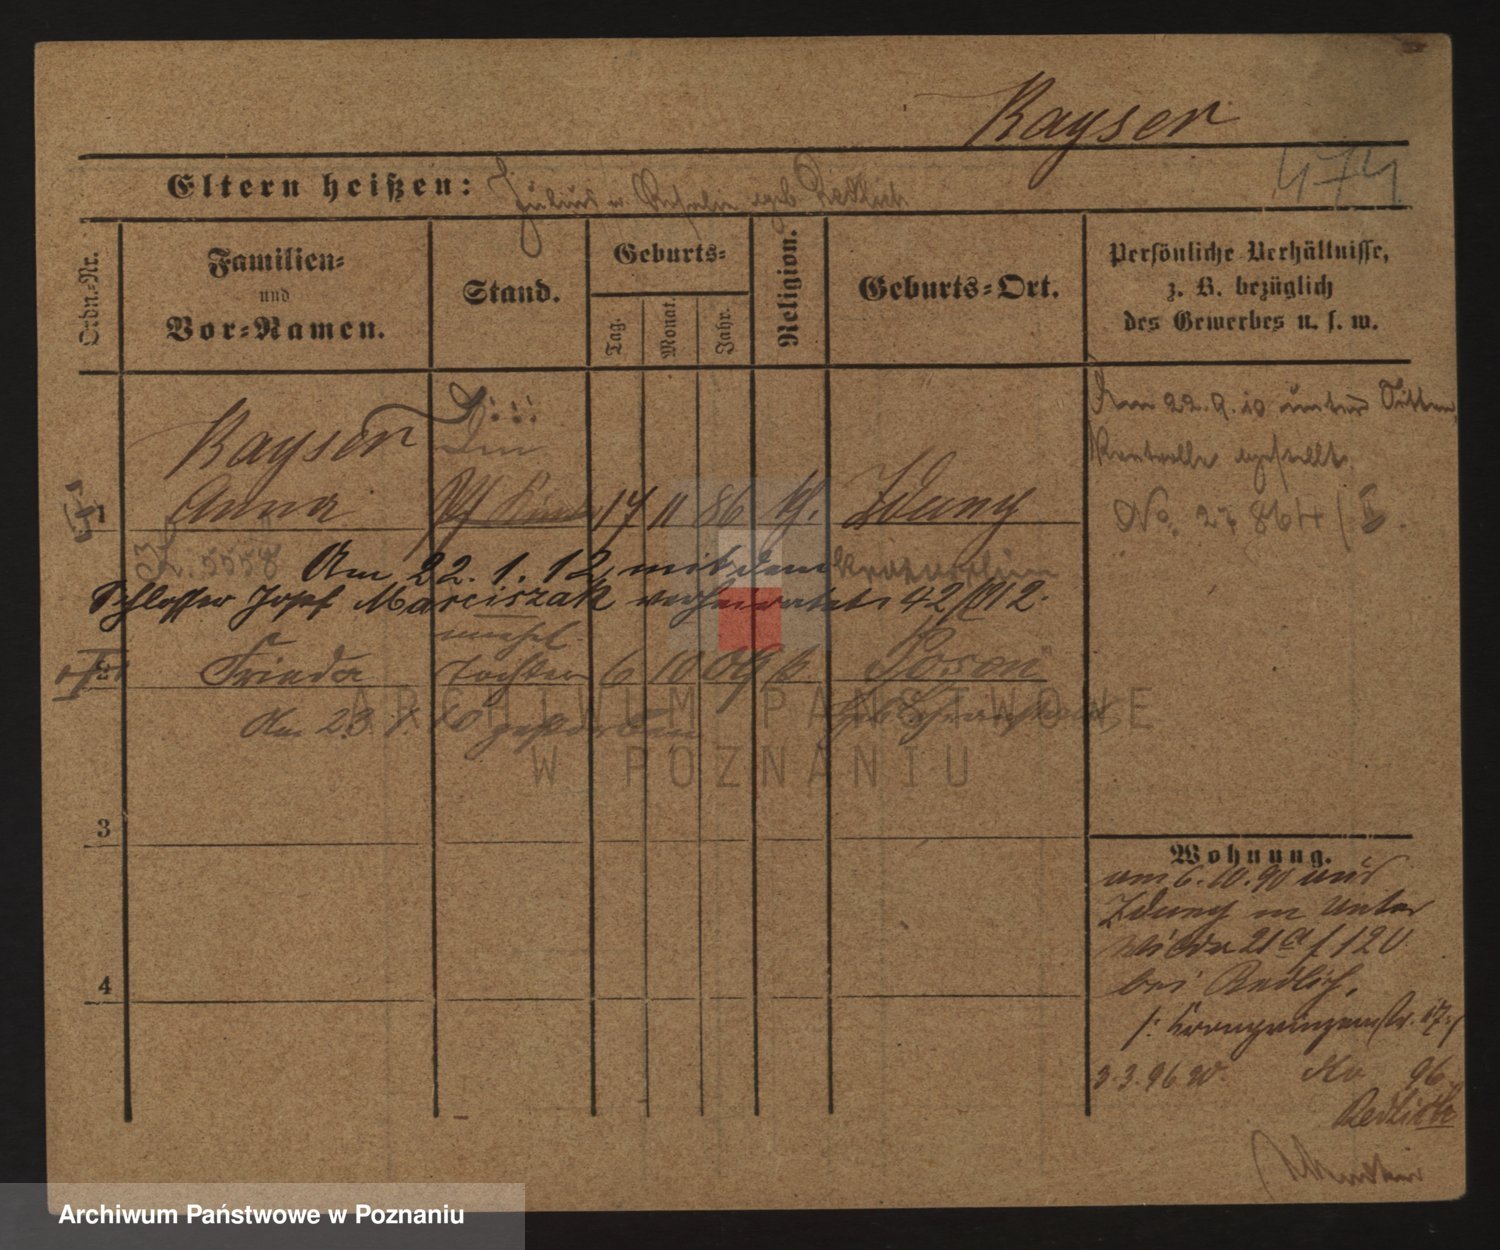 Kayser
474
Eltern heißen: Julius u. Rosalie geb. Redlich
Ordn.-Nr.
Familien- und Vor-Namen.
Stand.
Geburts-
Tag.
Monat.
Jahr.
Religion.
Geburts-Ort.
Persönliche Verhältnisse,
z. B. bezüglich
des Gewerbes u. s. w.
Am 22.9.10 unter Sitten
Kontrolle gestellt.
No. 27864/
Kayser
Anna
17 11 86 Zduny
1
K. 5558
Am 22.1.12 mit dem
Schlosser Josef Marciszak verheiratet 42/912.
unehel.
2 Frieda Tochter 6 10 09 k Posen
Am 23. 10 gestorben
3
4
Wohnung.
am 6.10.90 aus
Zduny in Unter
Wilda 21a f 120
bei Redlich.
/: Kronprinzenstr. 17 :/
3.3.96 W. No 96
Redlich
ARCHIWUM PAŃSTWOWE
W POZNANIU
Archiwum Państwowe w Poznaniu